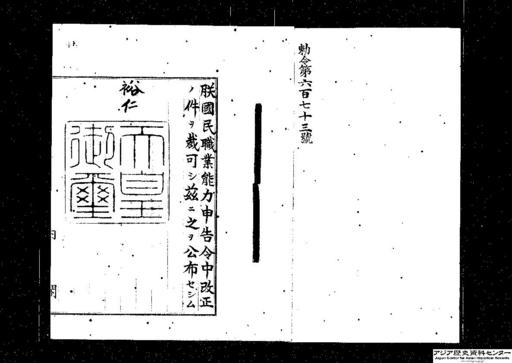 勅令第六百七十三號
朕國民職業能力申告令中改正
ノ件ヲ裁可シ茲ニ之ヲ公布セシム
裕仁
天皇
御璽
内閣
アジア歴史資料センター
Japan Center for Asian Historical Records